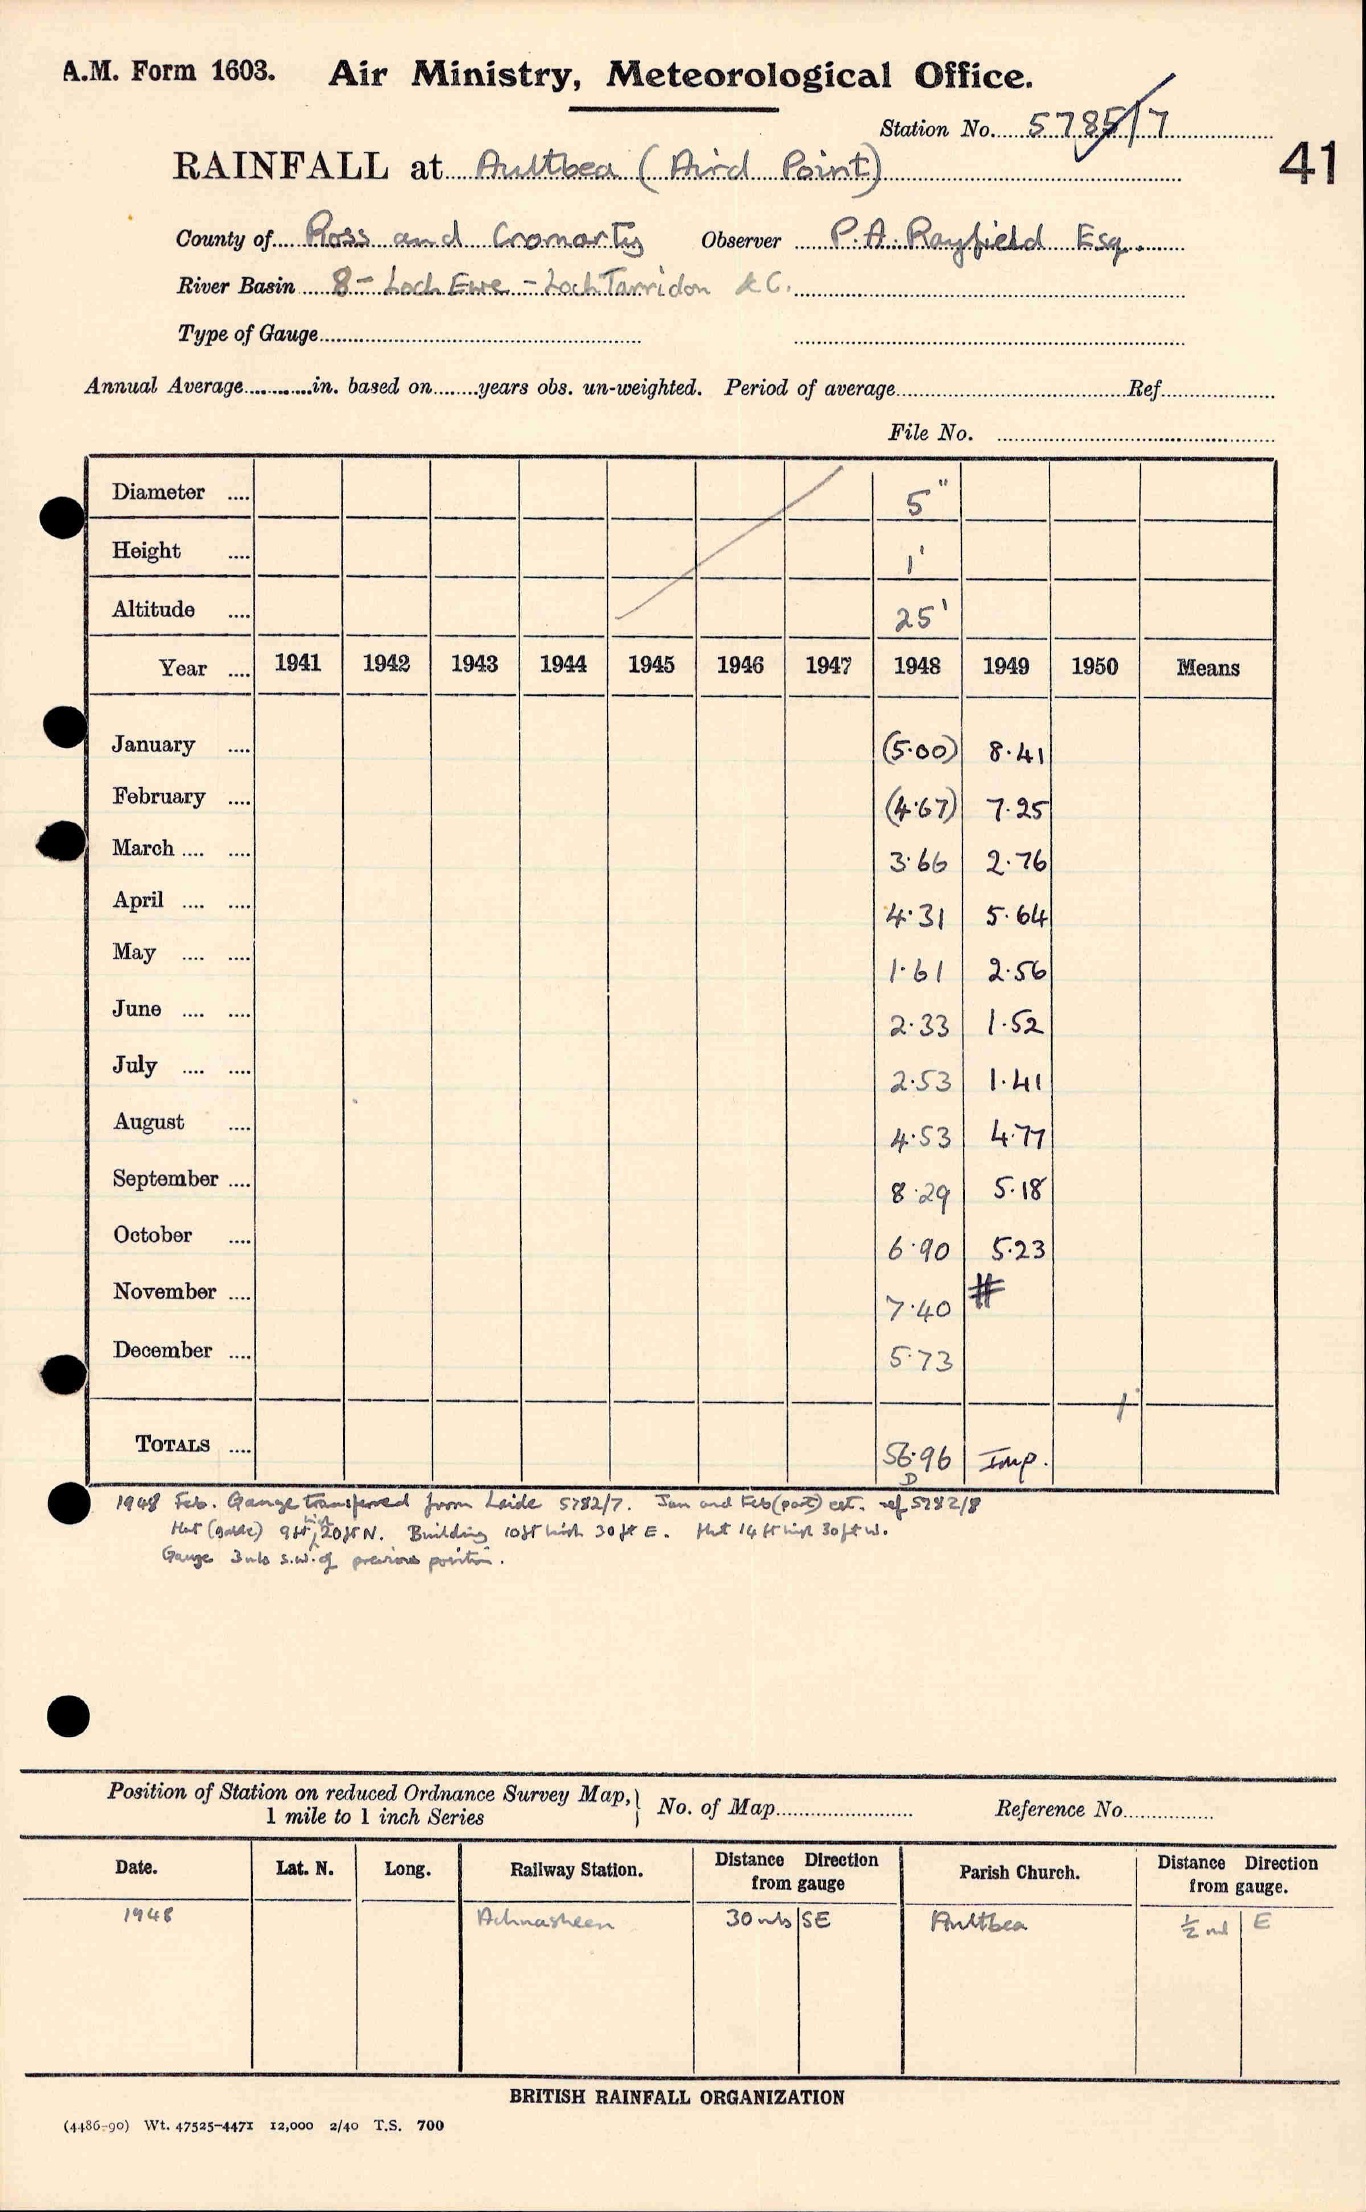 A.M. Form 1603. Air Ministry, Meteorological Office.
Station No. 5785/7
41
RAINFALL at Aultbea (Aird Point)
County of Ross and Cromarty Observer P.A. Rayfield Esq.
River Basin 8 - Loch Ewe - Loch Torridon &C.
Type of Gauge
Annual Average in. based on years obs. un-weighted. Period of average Ref
File No.
Diameter 5"
Height 1'
Altitude 25'
Year 1941 1942 1943 1944 1945 1946 1947 1948 1949 1950 Means
January (5.00) 8.41
February (4.67) 7.25
March 3.66 2.76
April 4.31 5.64
May 1.61 2.56
June 2.33 1.52
July 2.53 1.41
August 4.53 4.77
September 8.29 5.18
October 6.90 5.23
November 7.40 #
December 5.73
TOTALS 56.96 Imp.
D
1948 Feb. Gauge transferred from Laide 5782/7. Jan and Feb (part) est. ref 5782/8
Hut 9ft high 20ft N. Building 10ft high 30ft E. Hut 14 ft high 30ft W.
Gauge 3 mls S.W. of previous position.
Position of Station on reduced Ordnance Survey Map, 1 mile to 1 inch Series No. of Map Reference No.
Date. Lat. N. Long. Railway Station. Distance Direction from gauge Parish Church. Distance Direction from gauge.
1948 Achnasheen 30 mls SE Aultbea ½ ml E
BRITISH RAINFALL ORGANIZATION
(4486-90) Wt. 47525-4471 12,000 2/40 T.S. 700